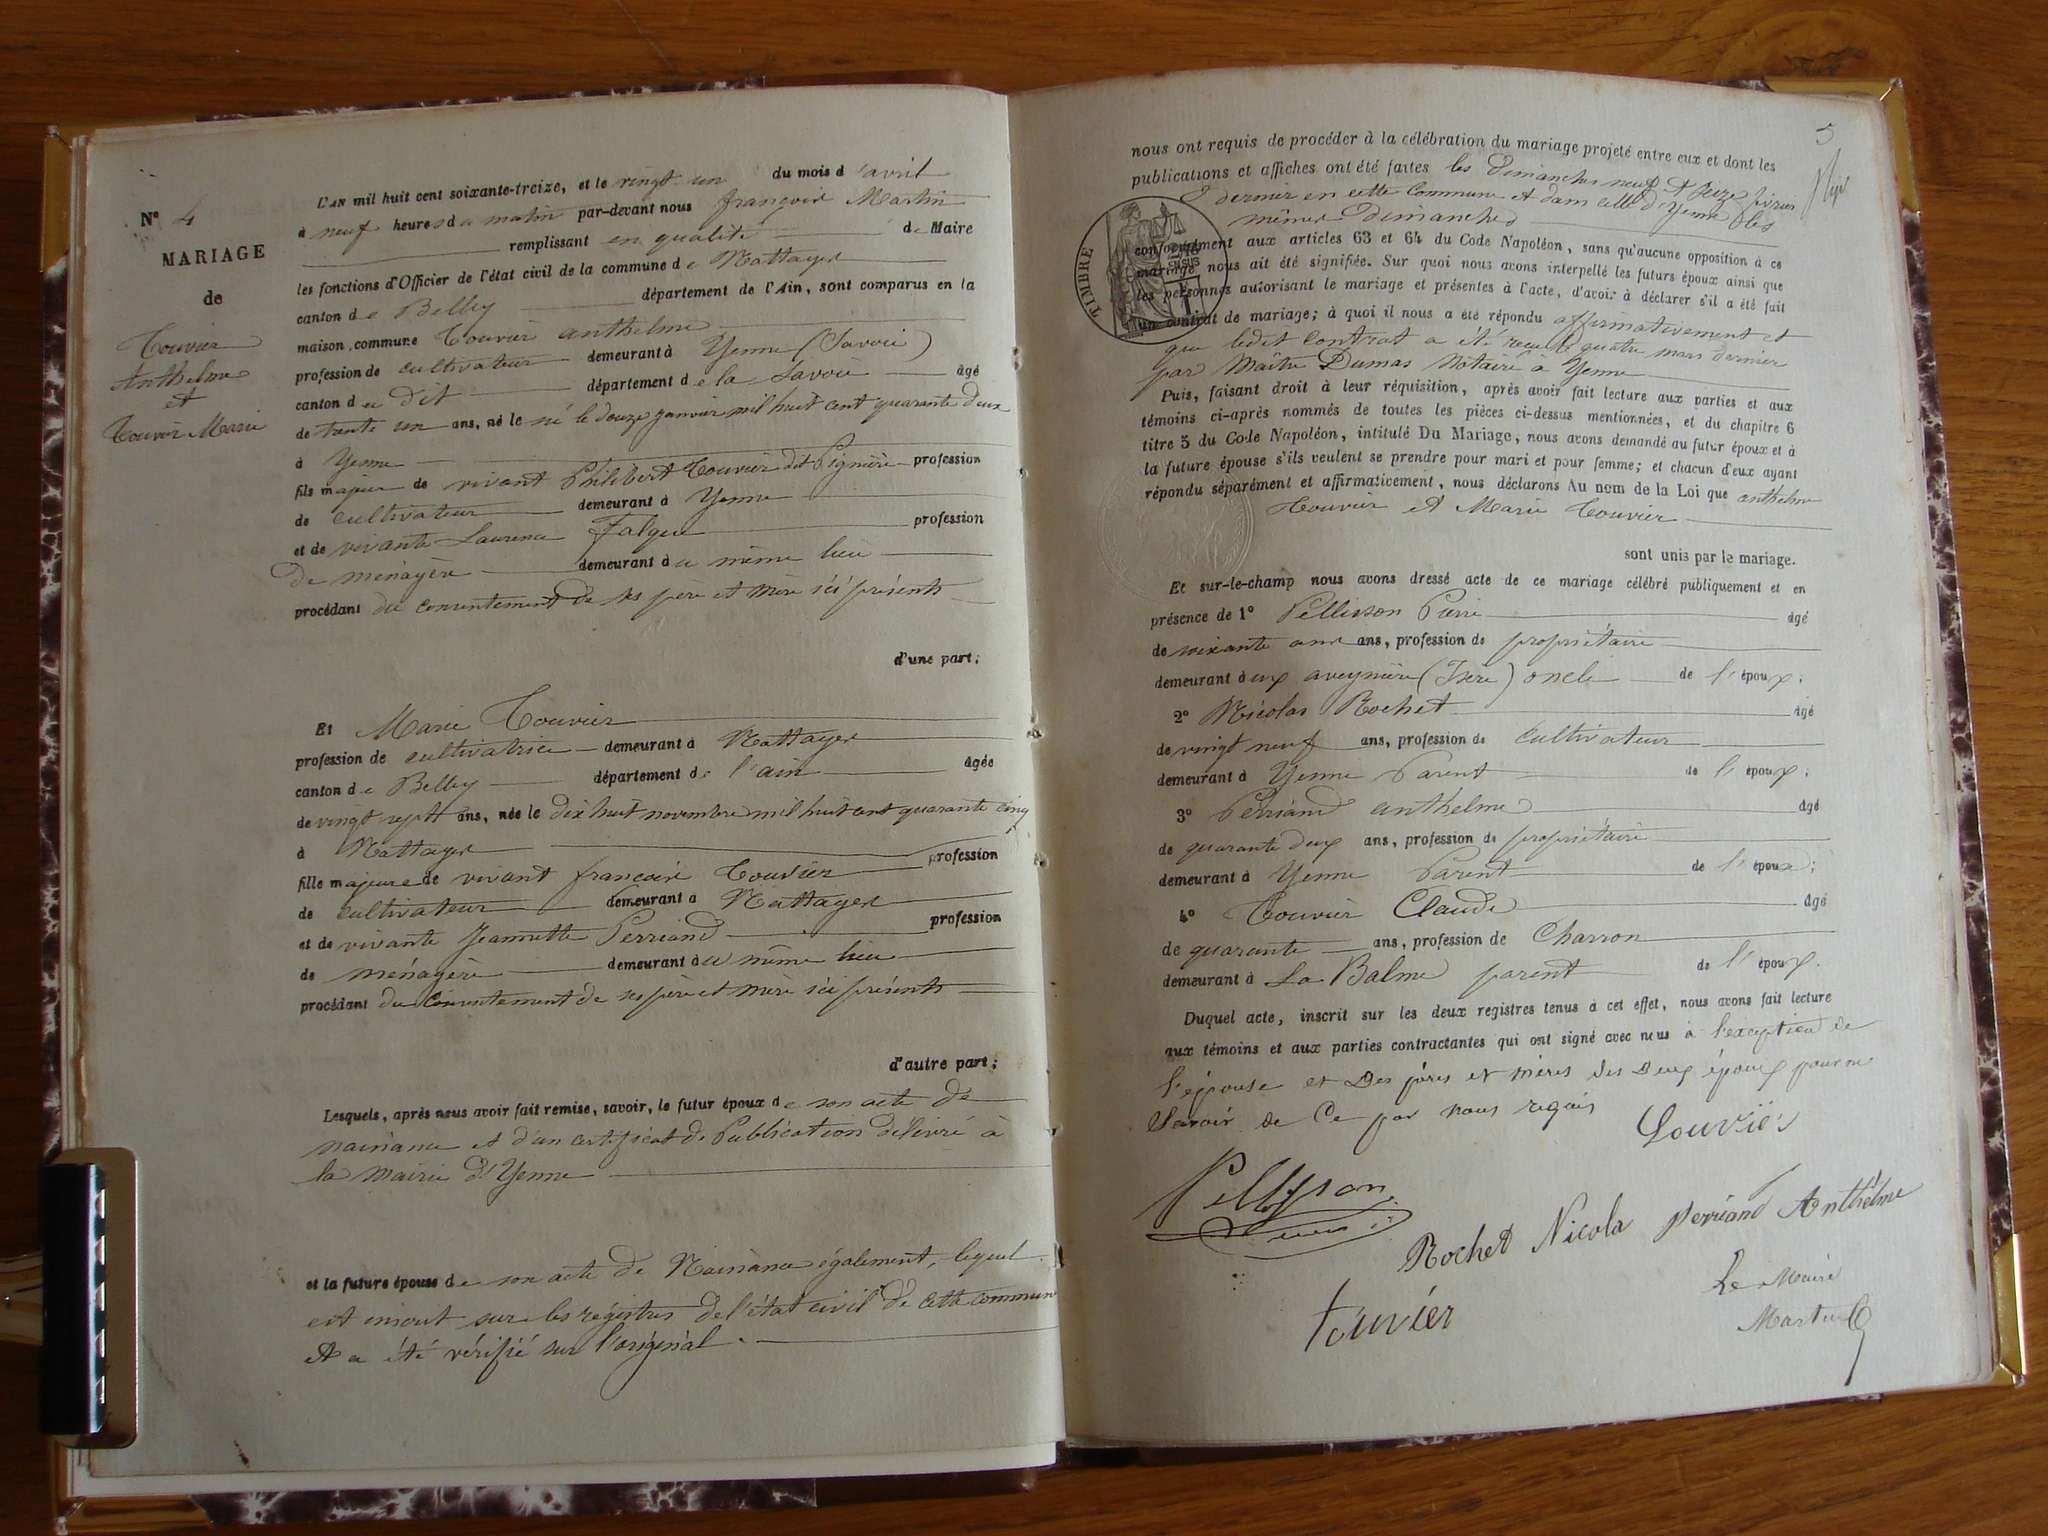 N° 4
MARIAGE
de
Touvier
Anthelme
et
Touvier Marie
L'AN mil huit cent soixante-treize, et le vingt un du mois d'avril
à neuf heures du matin par-devant nous françois Martin
remplissant en qualité de Maire
les fonctions d'Officier de l'état civil de la commune de Nattages
canton de Belley département de l'Ain, sont comparus en la
maison commune Touvier anthelme
profession de cultivateur demeurant à Yenne (Savoie)
canton du dit département de la Savoie âgé
de trente un ans, né le né le douze janvier mil huit cent quarante deux
à Yenne
fils majeur de vivant Philibert Touvier dit Pignière profession
de cultivateur demeurant à Yenne
et de vivante Laurence Falque profession
de ménagère demeurant au même lieu
procédant du consentement de ses père et mère ici présents
d'une part;
Et Marie Touvier
profession de cultivatrice demeurant à Nattages
canton de Belley département de l'ain âgée
de vingt sept ans, née le dix huit novembre mil huit cent quarante cinq
à Nattages
fille majeure de vivant françois Touvier profession
de cultivateur demeurant à Nattages
et de vivante Jeannette Perriand profession
de ménagère demeurant au même lieu
procédant du consentement de ses père et mère ici présents
d'autre part;
Lesquels, après nous avoir fait remise, savoir, le futur époux de son acte de
naissance et d'un certificat de Publication délivré à
la mairie d'Yenne
et la future épouse de son acte de Naissance également, lequel
est inscrit sur les registres de l'état civil de cette commune
et a été vérifié sur l'original.
5
nous ont requis de procéder à la célébration du mariage projeté entre eux et dont les
publications et affiches ont été faites les Dimanches neuf et seize février
dernier en cette Commune et dans celle d'Yenne les
mêmes Dimanches
TIMBRE
conformément aux articles 63 et 64 du Code Napoléon, sans qu'aucune opposition à ce
mariage nous ait été signifiée. Sur quoi nous avons interpellé les futurs époux ainsi que
les personnes autorisant le mariage et présentes à l'acte, d'avoir à déclarer s'il a été fait
un contrat de mariage; à quoi il nous a été répondu affirmativement et
que ledit Contrat a été reçu le quatre mars dernier
par Maître Dumas Notaire à Yenne
Puis, faisant droit à leur réquisition, après avoir fait lecture aux parties et aux
témoins ci-après nommés de toutes les pièces ci-dessus mentionnées, et du chapitre 6
titre 5 du Code Napoléon, intitulé Du Mariage, nous avons demandé au futur époux et à
la future épouse s'ils veulent se prendre pour mari et pour femme; et chacun d'eux ayant
répondu séparément et affirmativement, nous déclarons Au nom de la Loi que anthelme
Touvier et Marie Touvier
sont unis par le mariage.
Et sur-le-champ nous avons dressé acte de ce mariage célébré publiquement et en
présence de 1° Pellisson Pierre âgé
de soixante ans, profession de propriétaire
demeurant aux aveynière (Isère) oncle de l'époux;
2° Nicolas Rochet âgé
de vingt neuf ans, profession de cultivateur
demeurant à Yenne Parent de l'époux;
3° Perriand anthelme âgé
de quarante deux ans, profession de propriétaire
demeurant à Yenne Parent de l'époux;
4° Touvier Claude âgé
de quarante ans, profession de Charron
demeurant à La Balme parent de l'époux.
Duquel acte, inscrit sur les deux registres tenus à cet effet, nous avons fait lecture
aux témoins et aux parties contractantes qui ont signé avec nous à l'exception de
l'épouse et des pères et mères des deux époux pour ne
Savoir de Ce par nous requis
Louvier
Pellisson
Rochet Nicola Perriand Anthelme
Touvier
Le Maire
Martin